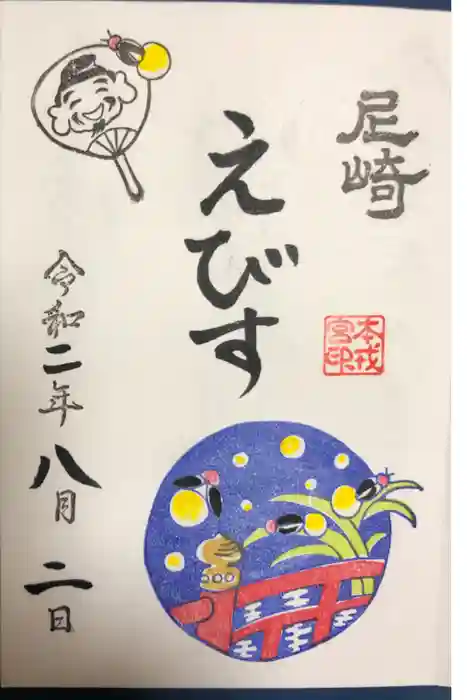 尼崎
えびす
本戎
宮印
令和二年八月二日